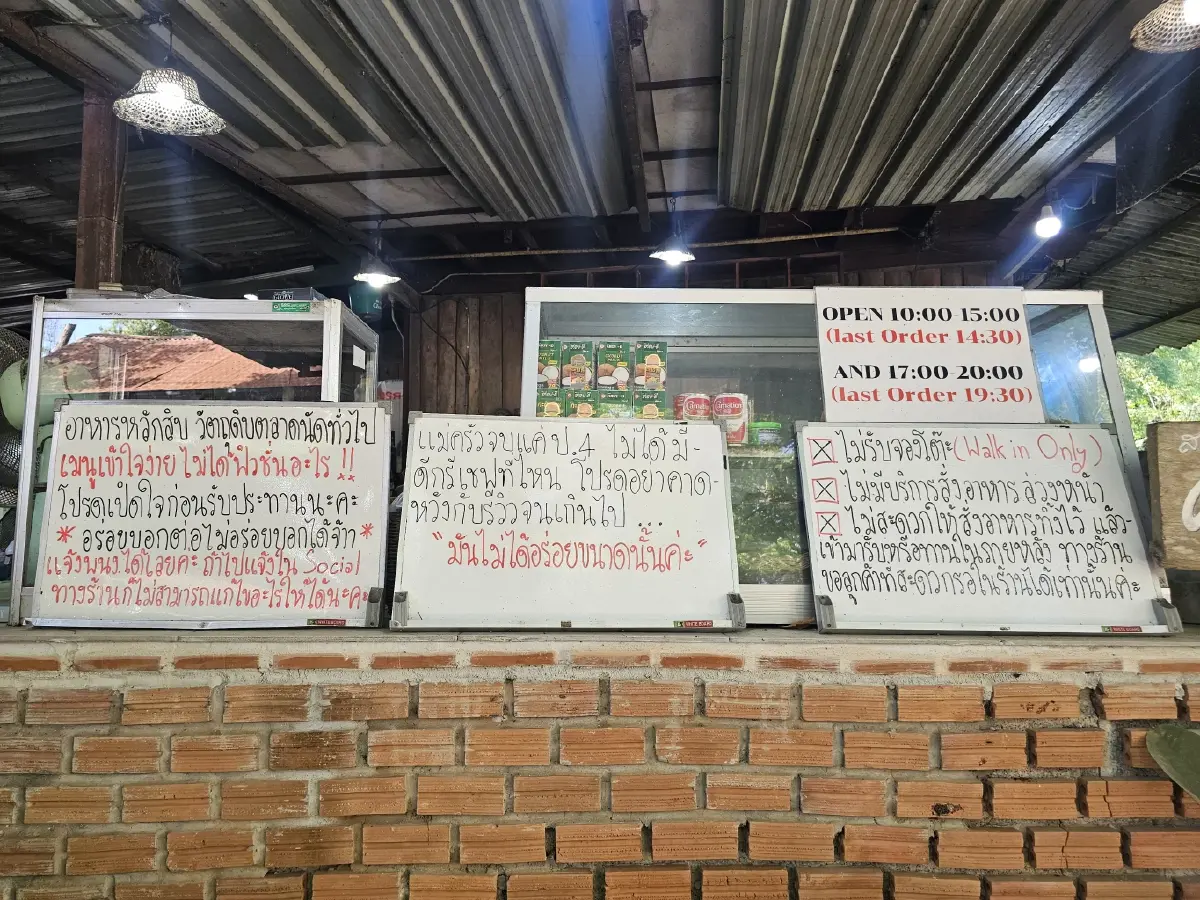 OPEN 10:00-15:00
(last Order 14:30)
AND 17:00-20:00
(last Order 19:30)
อาหารหลักสิบ วัตถุดิบตลาดนัดทั่วไป
เมนูเข้าใจง่าย ไม่ได้ฟิวชั่นอะไร !!
โปรดเปิดใจก่อนรับประทานนะคะ
* อร่อยบอกต่อไม่อร่อยบอกได้จ้าา *
แจ้งพนง.ได้เลยคะ ถ้าไปแจ้งใน Social
ทางร้านก็ไม่สามารถแก้ไขอะไรให้ได้นะคะ
แม่ครัวจบแค่ป.4 ไม่ได้มี-
ดีกรีเชฟที่ไหน โปรดอย่าคาด-
หวังกับรีวิวจนเกินไป
"มันไม่ได้อร่อยขนาดนั้นค่ะ"
☒ ไม่รับจองโต๊ะ (Walk in Only)
☒ ไม่มีบริการสั่งอาหาร ล่วงหน้า
☒ ไม่สะดวกให้สั่งอาหารทิ้งไว้ แล้ว-
เข้ามารับหรือทานในภายหลัง ทางร้าน
ขอลูกค้าที่สะดวกรอในร้านได้เท่านั้นคะ